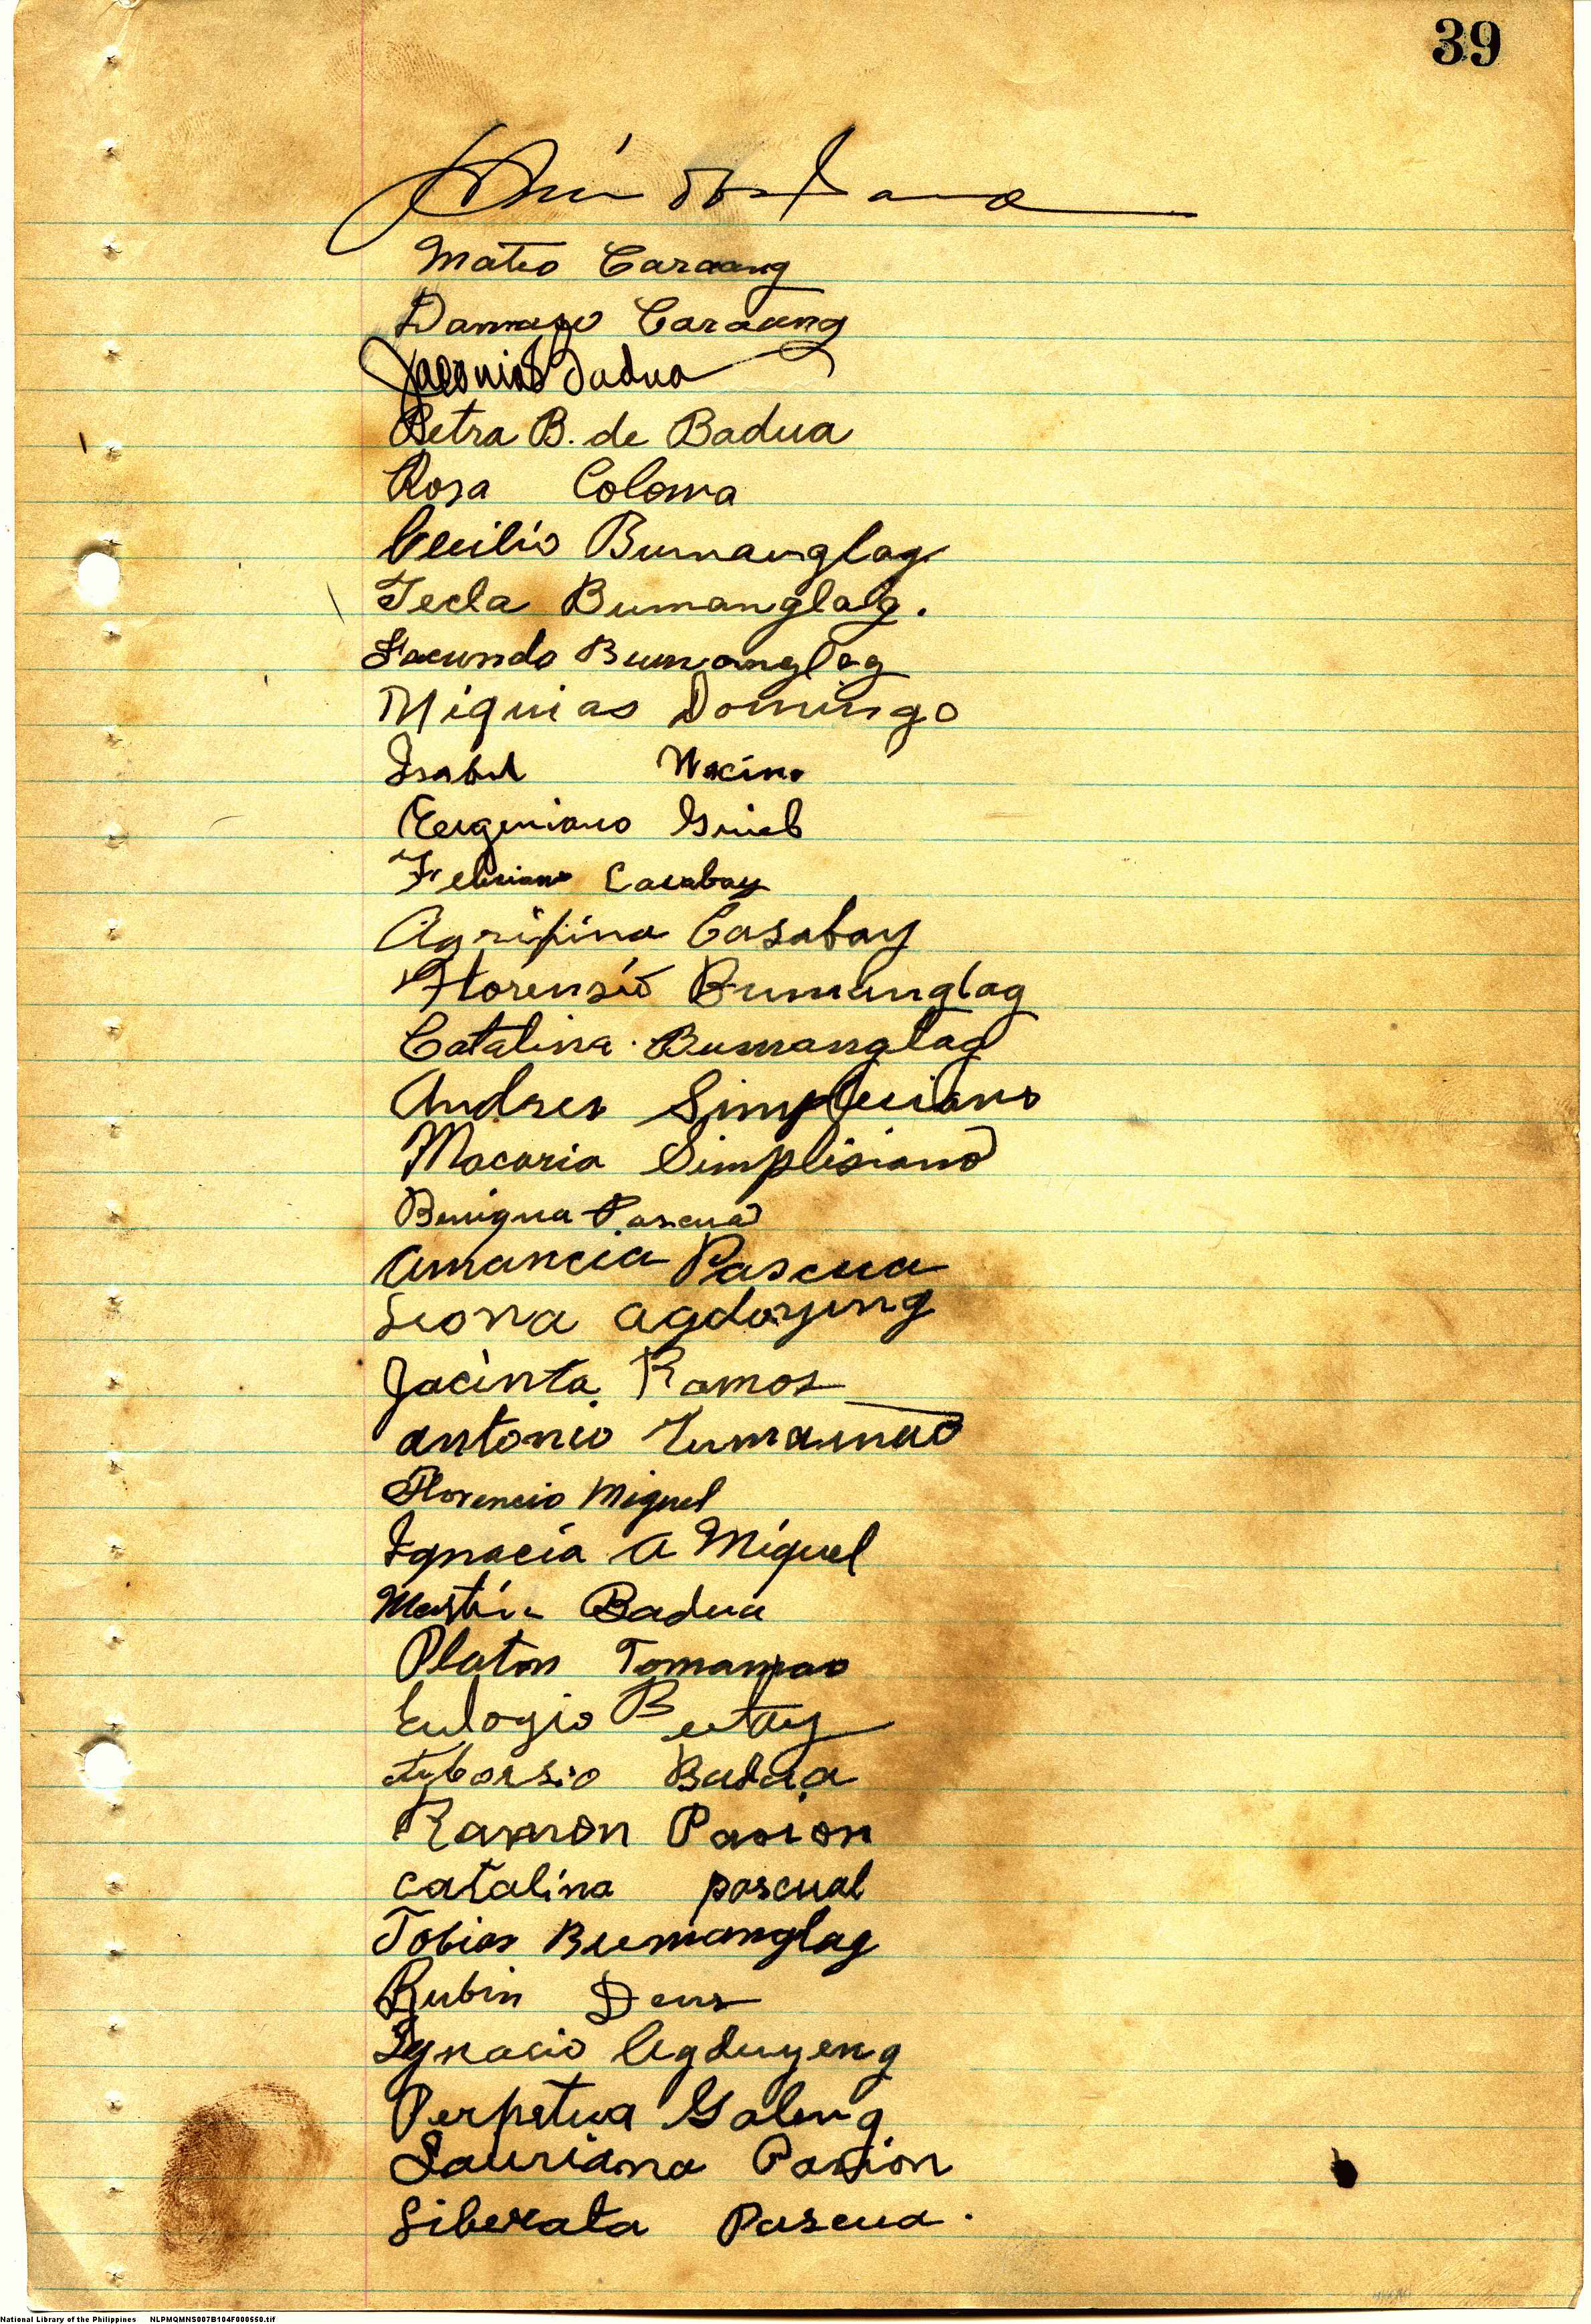 39
Mateo Caraang
Damaso Caraang
Badua
Petra B. de Badua
Rosa Coloma
Cecilio Bumanglag
Tecla Bumanglag.
Facundo Bumanglag
Miquias Domingo
Isabel
Eugeniano
Feliciano Casabay
Agripina Casabay
Florensio Bumanglag
Catalina Bumanglag
Andres Simpliciano
Macaria Simplisiano
Benigna Pascua
Amancia Pascua
Leona Agdoyung
Jacinta Ramos
Antonio Tumamao
Florencio Miguel
Ignacia A Miguel
Martin Badua
Platon Tomamao
Eulogio
Badua
Ramon Pasion
Catalina pascual
Tobias Bumanglag
Rubin
Ignacio Agduyeng
Perpetua Galeng
Lauriana Pasion
Liberata Pascua.
National Library of the Philippines NLPMQMNS007B104F000550.tif